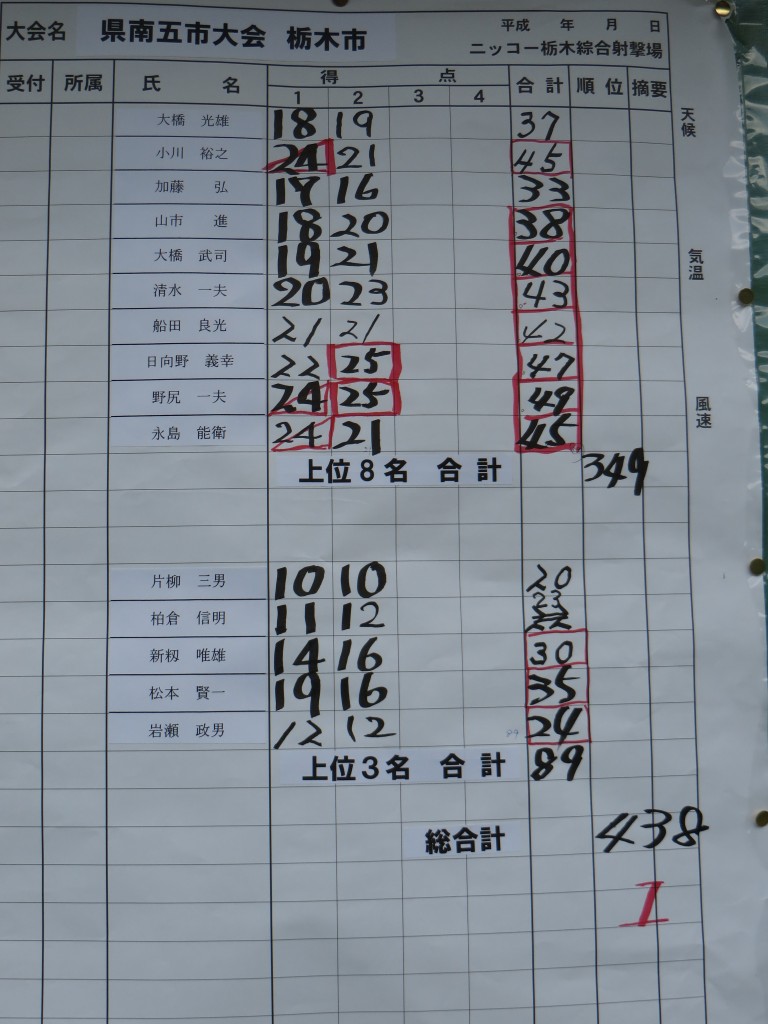 大会名 県南五市大会 栃木市 平成 年 月 日
ニッコー栃木綜合射撃場
受付 所属 氏 名 得 点 合計 順位 摘要
1 2 3 4
大橋 光雄 18 19 37
小川 裕之 24 21 45
加藤 弘 17 16 33
山市 進 18 20 38
大橋 武司 19 21 40
清水 一夫 20 23 43
船田 良光 21 21 42
日向野 義幸 22 25 47
野尻 一夫 24 25 49
永島 能衛 24 21 45
上位8名 合計 349
片柳 三男 10 10 20
柏倉 信明 11 12 23
新籾 唯雄 14 16 30
松本 賢一 19 16 35
岩瀬 政男 12 12 89 24
上位3名 合計 89
総合計 438
1
天候
気温
風速